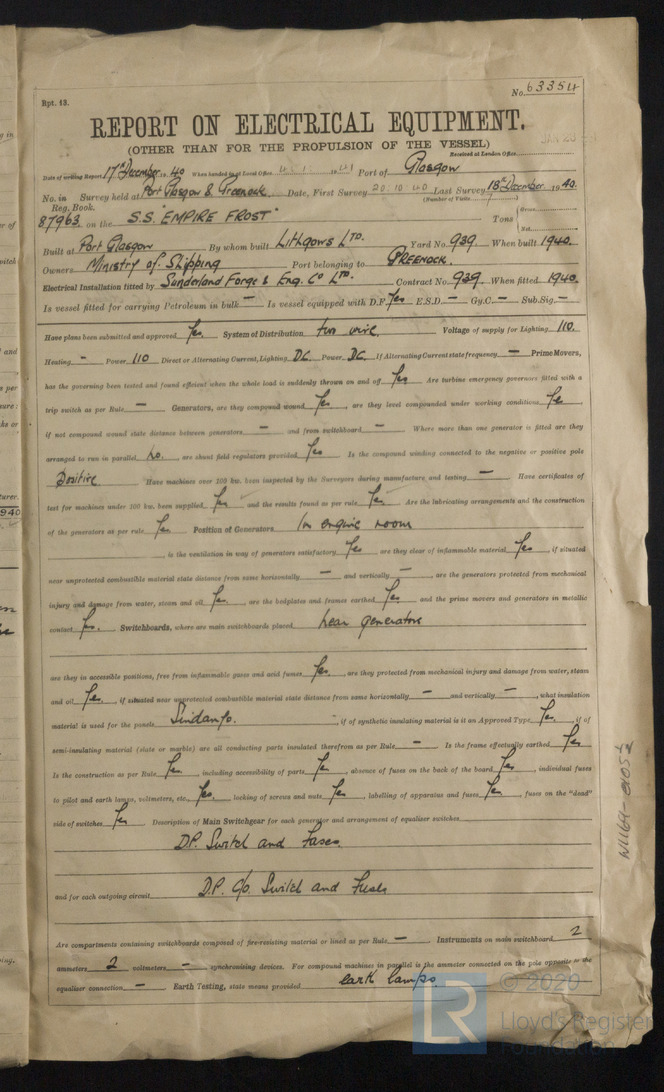 Rpt. 13.
No. 63354
REPORT ON ELECTRICAL EQUIPMENT.
(OTHER THAN FOR THE PROPULSION OF THE VESSEL)
Received at London Office
Date of writing Report 17th December 1940 When handed in at Local Office 19 41 Port of Glasgow
No. in Survey held at Port Glasgow & Greenock Date, First Survey 20.10.40 Last Survey 18th December 1940
Reg. Book. (Number of Visits
87963 on the S.S. "EMPIRE FROST" Tons { Gross
Net
Built at Port Glasgow By whom built Lithgows Ltd. Yard No. 939 When built 1940
Owners Ministry of Shipping Port belonging to GREENOCK.
Electrical Installation fitted by Sunderland Forge & Eng. Co Ltd. Contract No. 939 When fitted 1940
Is vessel fitted for carrying Petroleum in bulk — Is vessel equipped with D.F. Yes E.S.D. — Gy.C. — Sub.Sig. —
Have plans been submitted and approved Yes System of Distribution two wire Voltage of supply for Lighting 110.
Heating - Power 110 Direct or Alternating Current, Lighting DC Power DC If Alternating Current state frequency — Prime Movers,
has the governing been tested and found efficient when the whole load is suddenly thrown on and off Yes Are turbine emergency governors fitted with a
trip switch as per Rule — Generators, are they compound wound Yes, are they level compounded under working conditions Yes,
if not compound wound state distance between generators — and from switchboard — Where more than one generator is fitted are they
arranged to run in parallel No, are shunt field regulators provided Yes Is the compound winding connected to the negative or positive pole
Positive Have machines over 100 kw. been inspected by the Surveyors during manufacture and testing — Have certificates of
test for machines under 100 kw. been supplied Yes and the results found as per rule Yes Are the lubricating arrangements and the construction
of the generators as per rule Yes Position of Generators In engine room
, is the ventilation in way of generators satisfactory Yes are they clear of inflammable material Yes, if situated
near unprotected combustible material state distance from same horizontally — and vertically —, are the generators protected from mechanical
injury and damage from water, steam and oil Yes, are the bedplates and frames earthed Yes and the prime movers and generators in metallic
contact Yes. Switchboards, where are main switchboards placed Near generators
are they in accessible positions, free from inflammable gases and acid fumes Yes, are they protected from mechanical injury and damage from water, steam
and oil Yes, if situated near unprotected combustible material state distance from same horizontally — and vertically —, what insulation
material is used for the panels Sindanyo. -, if of synthetic insulating material is it an Approved Type Yes, if of
semi-insulating material (slate or marble) are all conducting parts insulated therefrom as per Rule — Is the frame effectually earthed Yes
Is the construction as per Rule Yes, including accessibility of parts Yes, absence of fuses on the back of the board Yes, individual fuses
to pilot and earth lamps, voltmeters, etc. Yes, locking of screws and nuts Yes, labelling of apparatus and fuses Yes, fuses on the "dead"
side of switches Yes Description of Main Switchgear for each generator and arrangement of equaliser switches
D.P. Switch and Fuses.
and for each outgoing circuit D.P. C/o. Switch and Fuses
Are compartments containing switchboards composed of fire-resisting material or lined as per Rule — Instruments on main switchboard 2
ammeters 2 voltmeters — synchronising devices. For compound machines in parallel is the ammeter connected on the pole opposite to the
equaliser connection — Earth Testing, state means provided earth lamps.
W1169-0105½
LR
© 2020
Lloyd's Register
Foundation